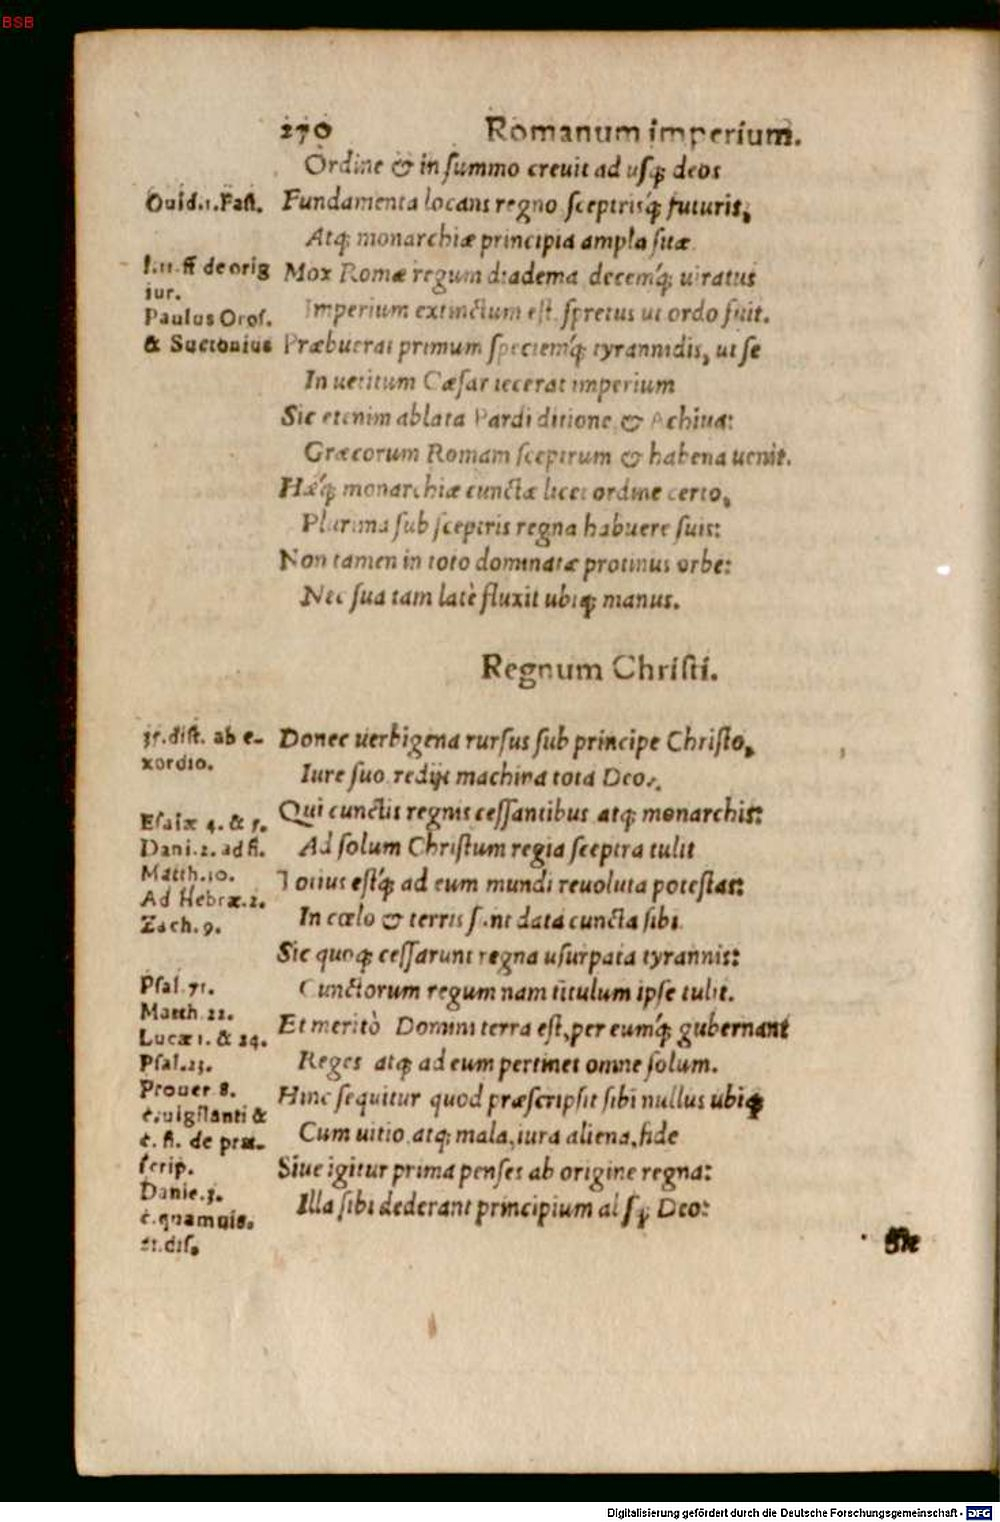 BSB
270 Romanum imperium.
Ordine & in summo crevit ad usq; deos
Ouid.1.Fast.
Fundamenta locans regno sceptrisq́; futuris,
Atq; monarchiæ principia ampla suæ.
ff de orig
iur.
Mox Romæ regum diadema decemq́; uiratus
Imperium extinctum est, spretus ut ordo fuit.
Paulus Oros.
& Suetonius
Præbuerat primum speciemq́; tyrannidis, ut se
In uetitum Cæsar iecerat imperium
Sic etenim ablata Pardi ditione & Achiua:
Græcorum Romam sceptrum & habena uenit.
Hæq́; monarchiæ cunctæ licet ordine certo,
Plurima sub sceptris regna habuere suis:
Non tamen in toto dominatæ protinus orbe:
Nec sua tam latè fluxit ubiq; manus.
Regnum Christi.
dist. ab e-
xordio.
Donec uerbigena rursus sub principe Christo,
Iure suo redijt machina tota Deo.
Esaiæ 4. & 5.
Dani.2. ad fi.
Matth.10.
Ad Hebræ.2.
Zach. 9.
Qui cunctis regnis cessantibus atq; monarchis:
Ad solum Christum regia sceptra tulit
Totius estq́; ad eum mundi reuoluta potestas:
In cœlo & terris sunt data cuncta sibi.
Sic quoq; cessarunt regna usurpata tyrannis:
Psal.71.
Matth 22.
Lucæ 1. & 24.
Psal.23.
Prouer 8.
c.uigilanti &
c. fi. de præ-
scrip.
Danie.3.
c.quamuis.
21.dis.
Cunctorum regum nam titulum ipse tulit.
Et meritò Domini terra est, per eumq́; gubernant
Reges atq; ad eum pertinet omne solum.
Hinc sequitur quod præscripsit sibi nullus ubiq;
Cum uitio atq; mala, iura aliena, fide
Siue igitur prima penses ab origine regna:
Illa sibi dederant principium absq; Deo:
Digitalisierung gefördert durch die Deutsche Forschungsgemeinschaft - DFG